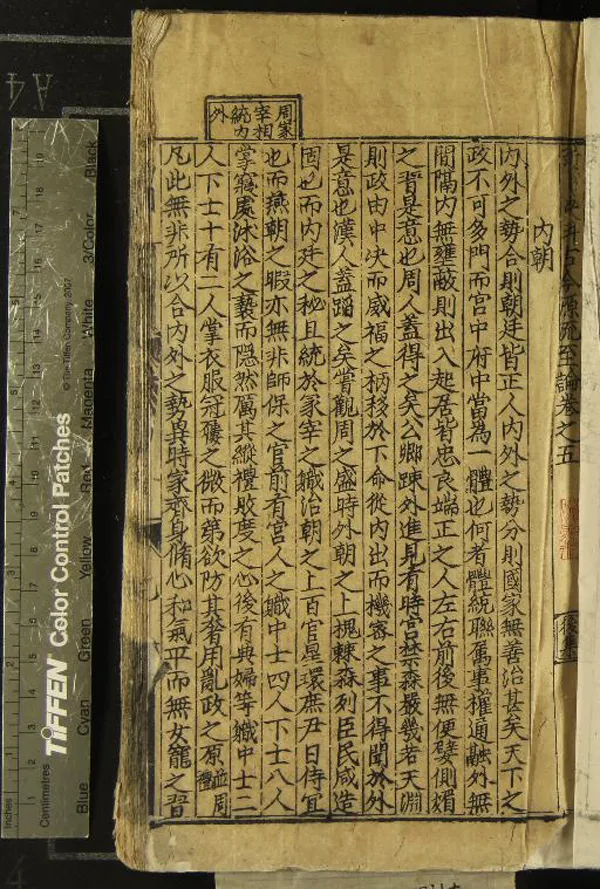 新箋決科古今源流至論卷之五
後集
內朝
內外之勢合則朝廷皆正人內外之勢分則國家無善治甚矣天下之
政不可多門而宮中府中當為一體也何者體統聯舊事權通融外無
間隔內無壅蔽則出入起居皆忠良端正之人左右前後無便嬖側媚
之習是意也周人蓋得之矣公卿踈外進見有時宮禁森嚴幾若天淵
則政由中決而威福之柄移於下命從內出而機密之事不得聞於外
是意也漢人蓋蹈之矣嘗觀周之盛時外朝之上槐棘森列臣民咸造
固也而內廷之秘且統於冢宰之職治朝之上百官星環庶尹日侍宜
也而燕朝之暇亦無非師保之官前有宮人之職中士四人下士八人
掌寢處沐浴之褻而隠然厲其縱禮敗度之心後有典婦等職中士二
人下士十有二人掌衣服冠屨之微而第欲防其奢用亂政之原並周禮
凡此無非所以合內外之勢異時家齊身脩心和氣平而無女寵之習
周家宰相統內外
Inches
Centimetres
1 2 3 4 5 6 7 8 9 10 11 12 13 14 15 16 17 18 19
TIFFEN Color Control Patches
© The Tiffen Company, 2007
Blue
Cyan
Green
Yellow
Red
Magenta
White
3/Color
Black
A4